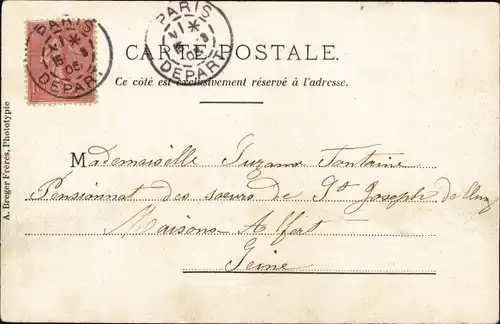 PARIS
DEPART
PARIS
DEPART
CARTE POSTALE.
Ce côté est exclusivement réservé à l'adresse.
A. Breger Frères, Phototypie
Mademoiselle Suzanne Fontaine
Pensionnat des sœurs de St Joseph de Cluny
Maisons Alfort
Seine